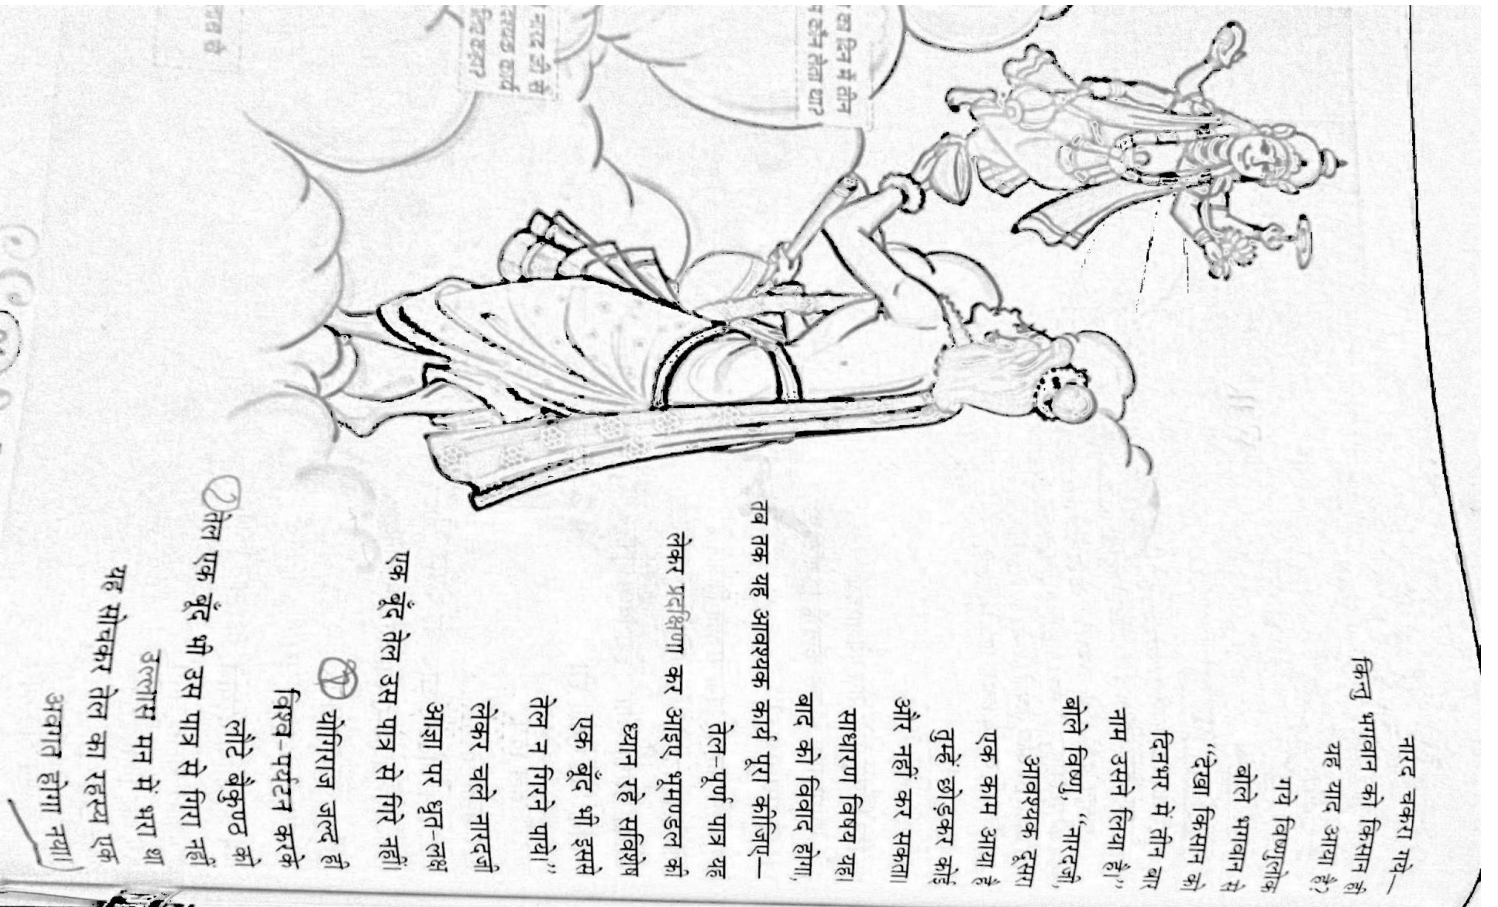 नारद चकरा गये—
किन्तु भगवान को किसान ही
यह याद आया है?
गये विष्णुलोक
बोले भगवान से
“देखा किसान को
दिनभर में तीन बार
नाम उसने लिया है।”
बोले विष्णु, “नारदजी,
आवश्यक दूसरा
एक काम आया है
तुम्हें छोड़कर कोई
और नहीं कर सकता।
साधारण विषय यह।
बाद को विवाद होगा,
तब तक यह आवश्यक कार्य पूरा कीजिए—
तेल-पूर्ण पात्र यह
लेकर प्रदक्षिणा कर आइए भूमण्डल की
ध्यान रहे सविशेष
एक बूँद भी इससे
तेल न गिरने पाये।”
लेकर चले नारदजी
आज्ञा पर धृत-लक्ष
एक बूँद तेल उस पात्र से गिरे नहीं।
① योगिराज जल्द ही
विश्व-पर्यटन करके
लौटे बैकुण्ठ को
② तेल एक बूँद भी उस पात्र से गिरा नहीं
उल्लास मन में भरा था
यह सोचकर तेल का रहस्य एक
अवगत होगा नया।